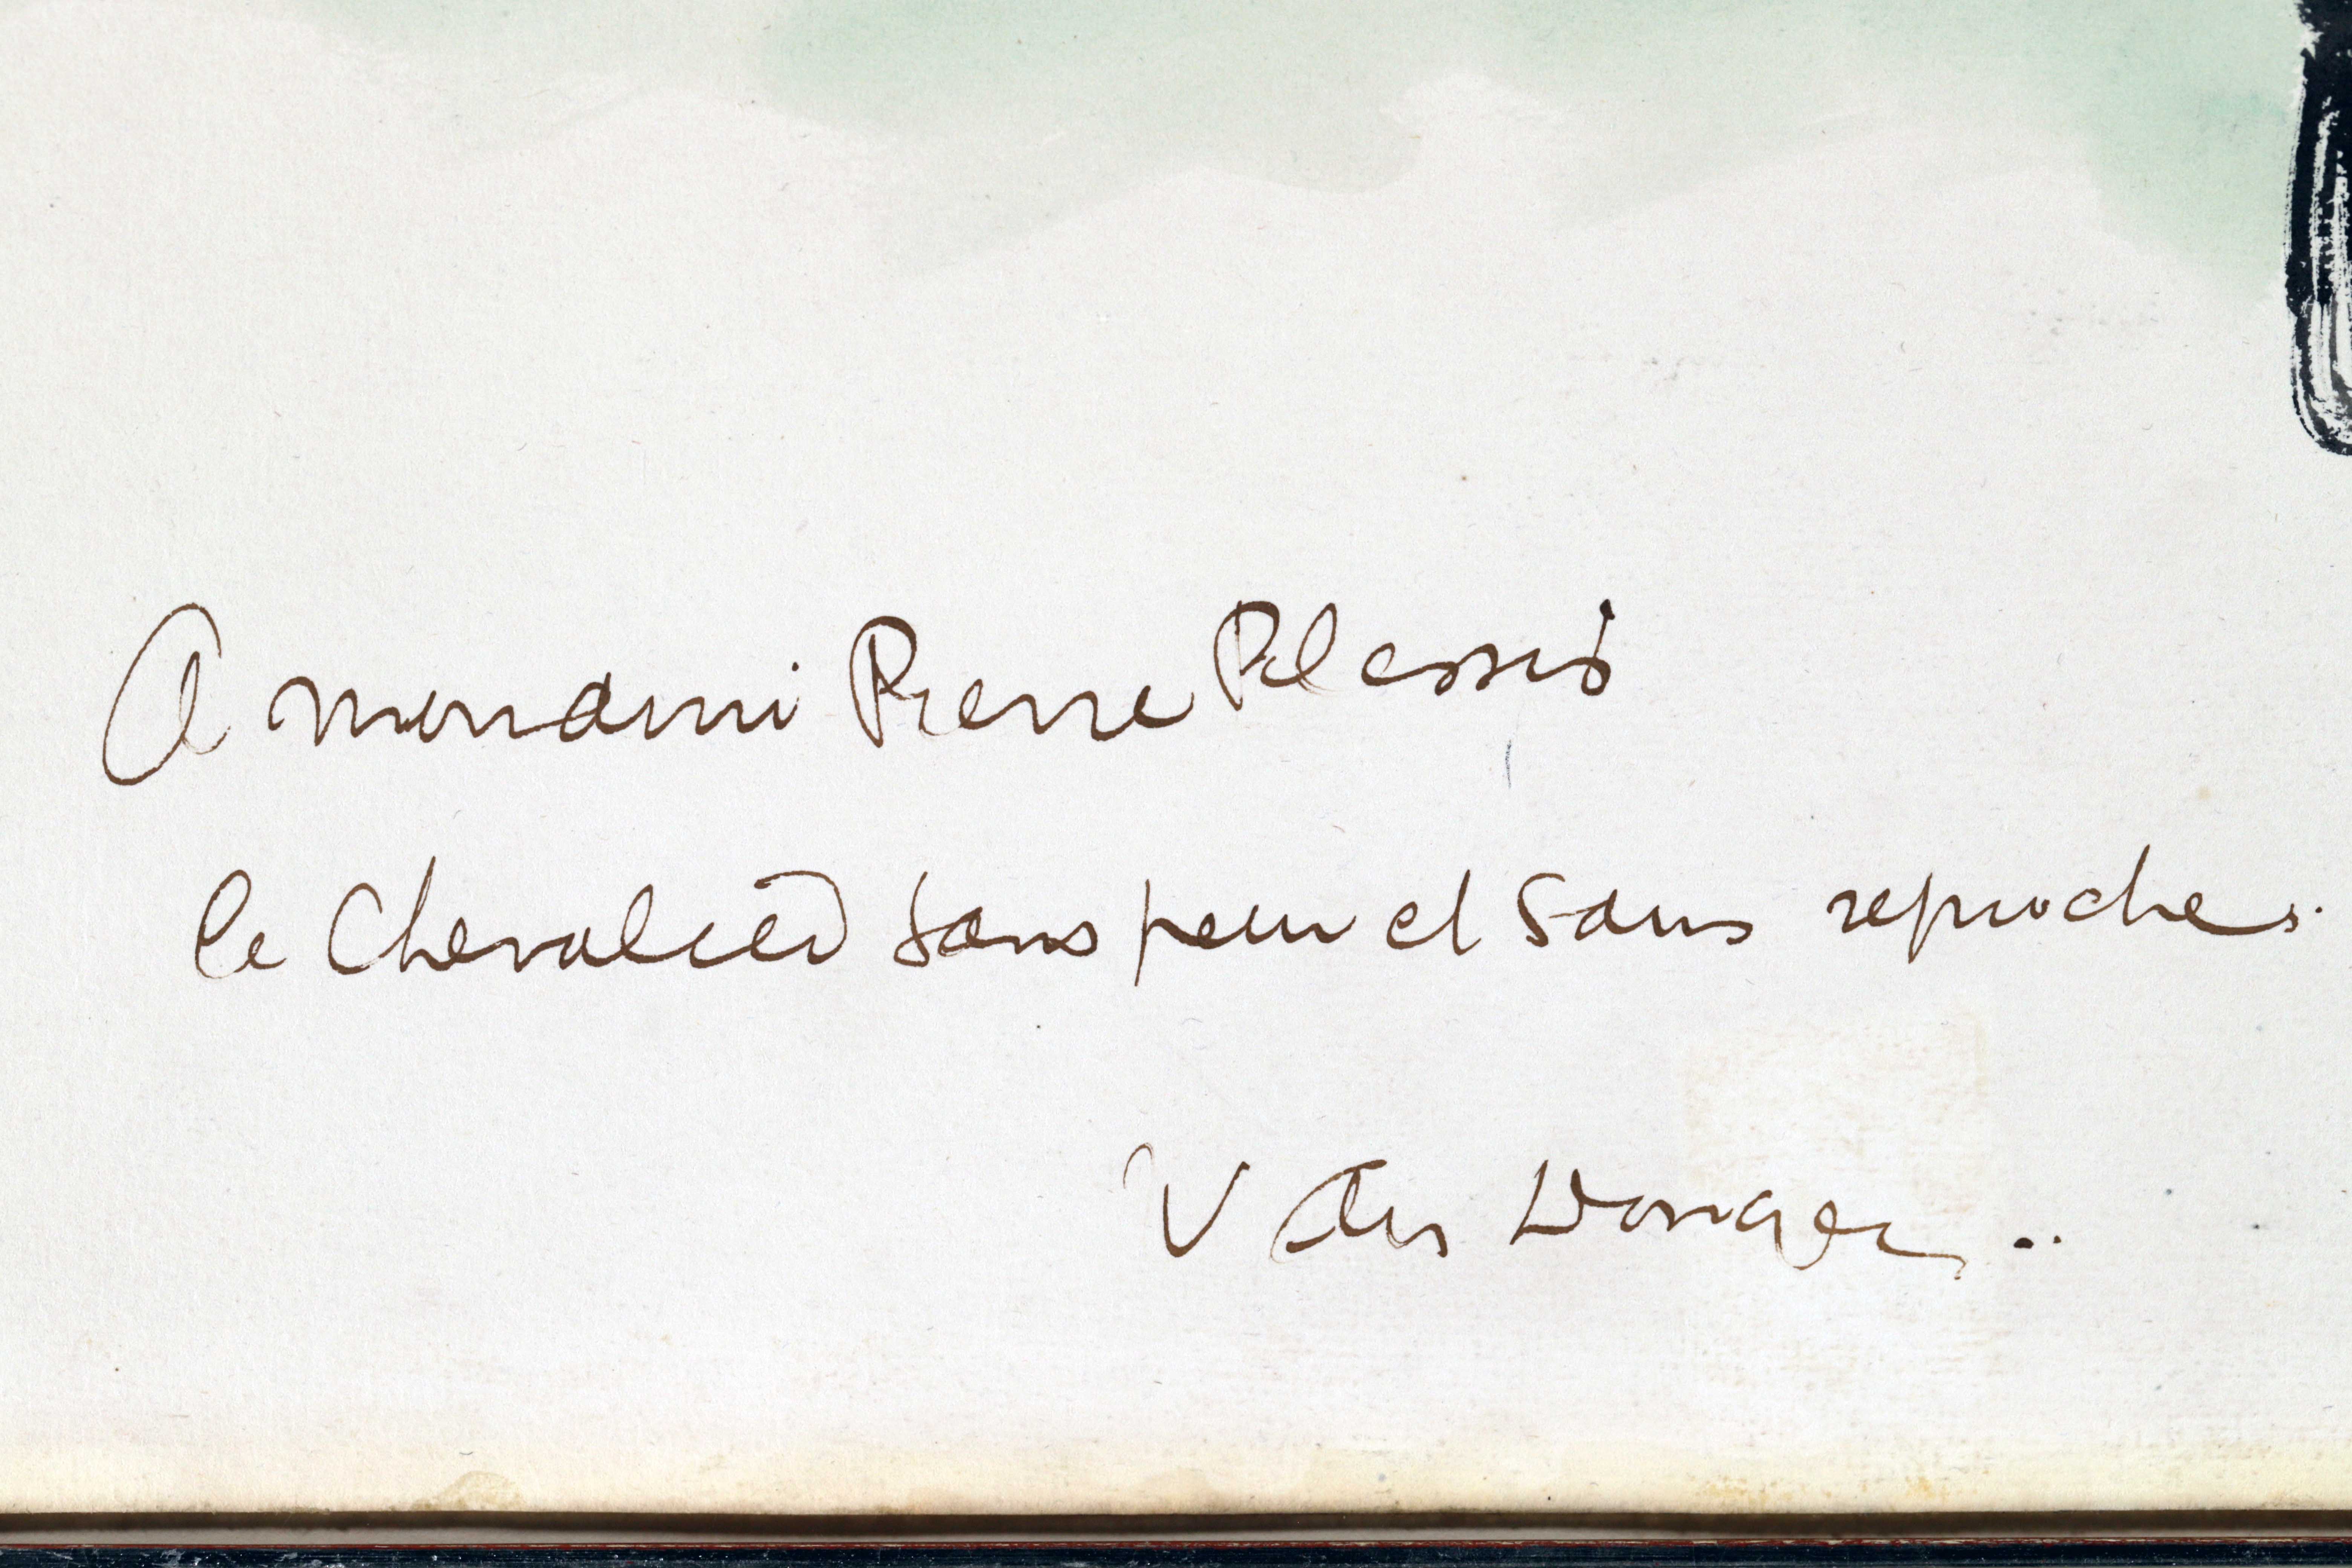 A mon ami Pierre Plessis
le Chevalier sans peur et sans reproches.
Van Dongen..